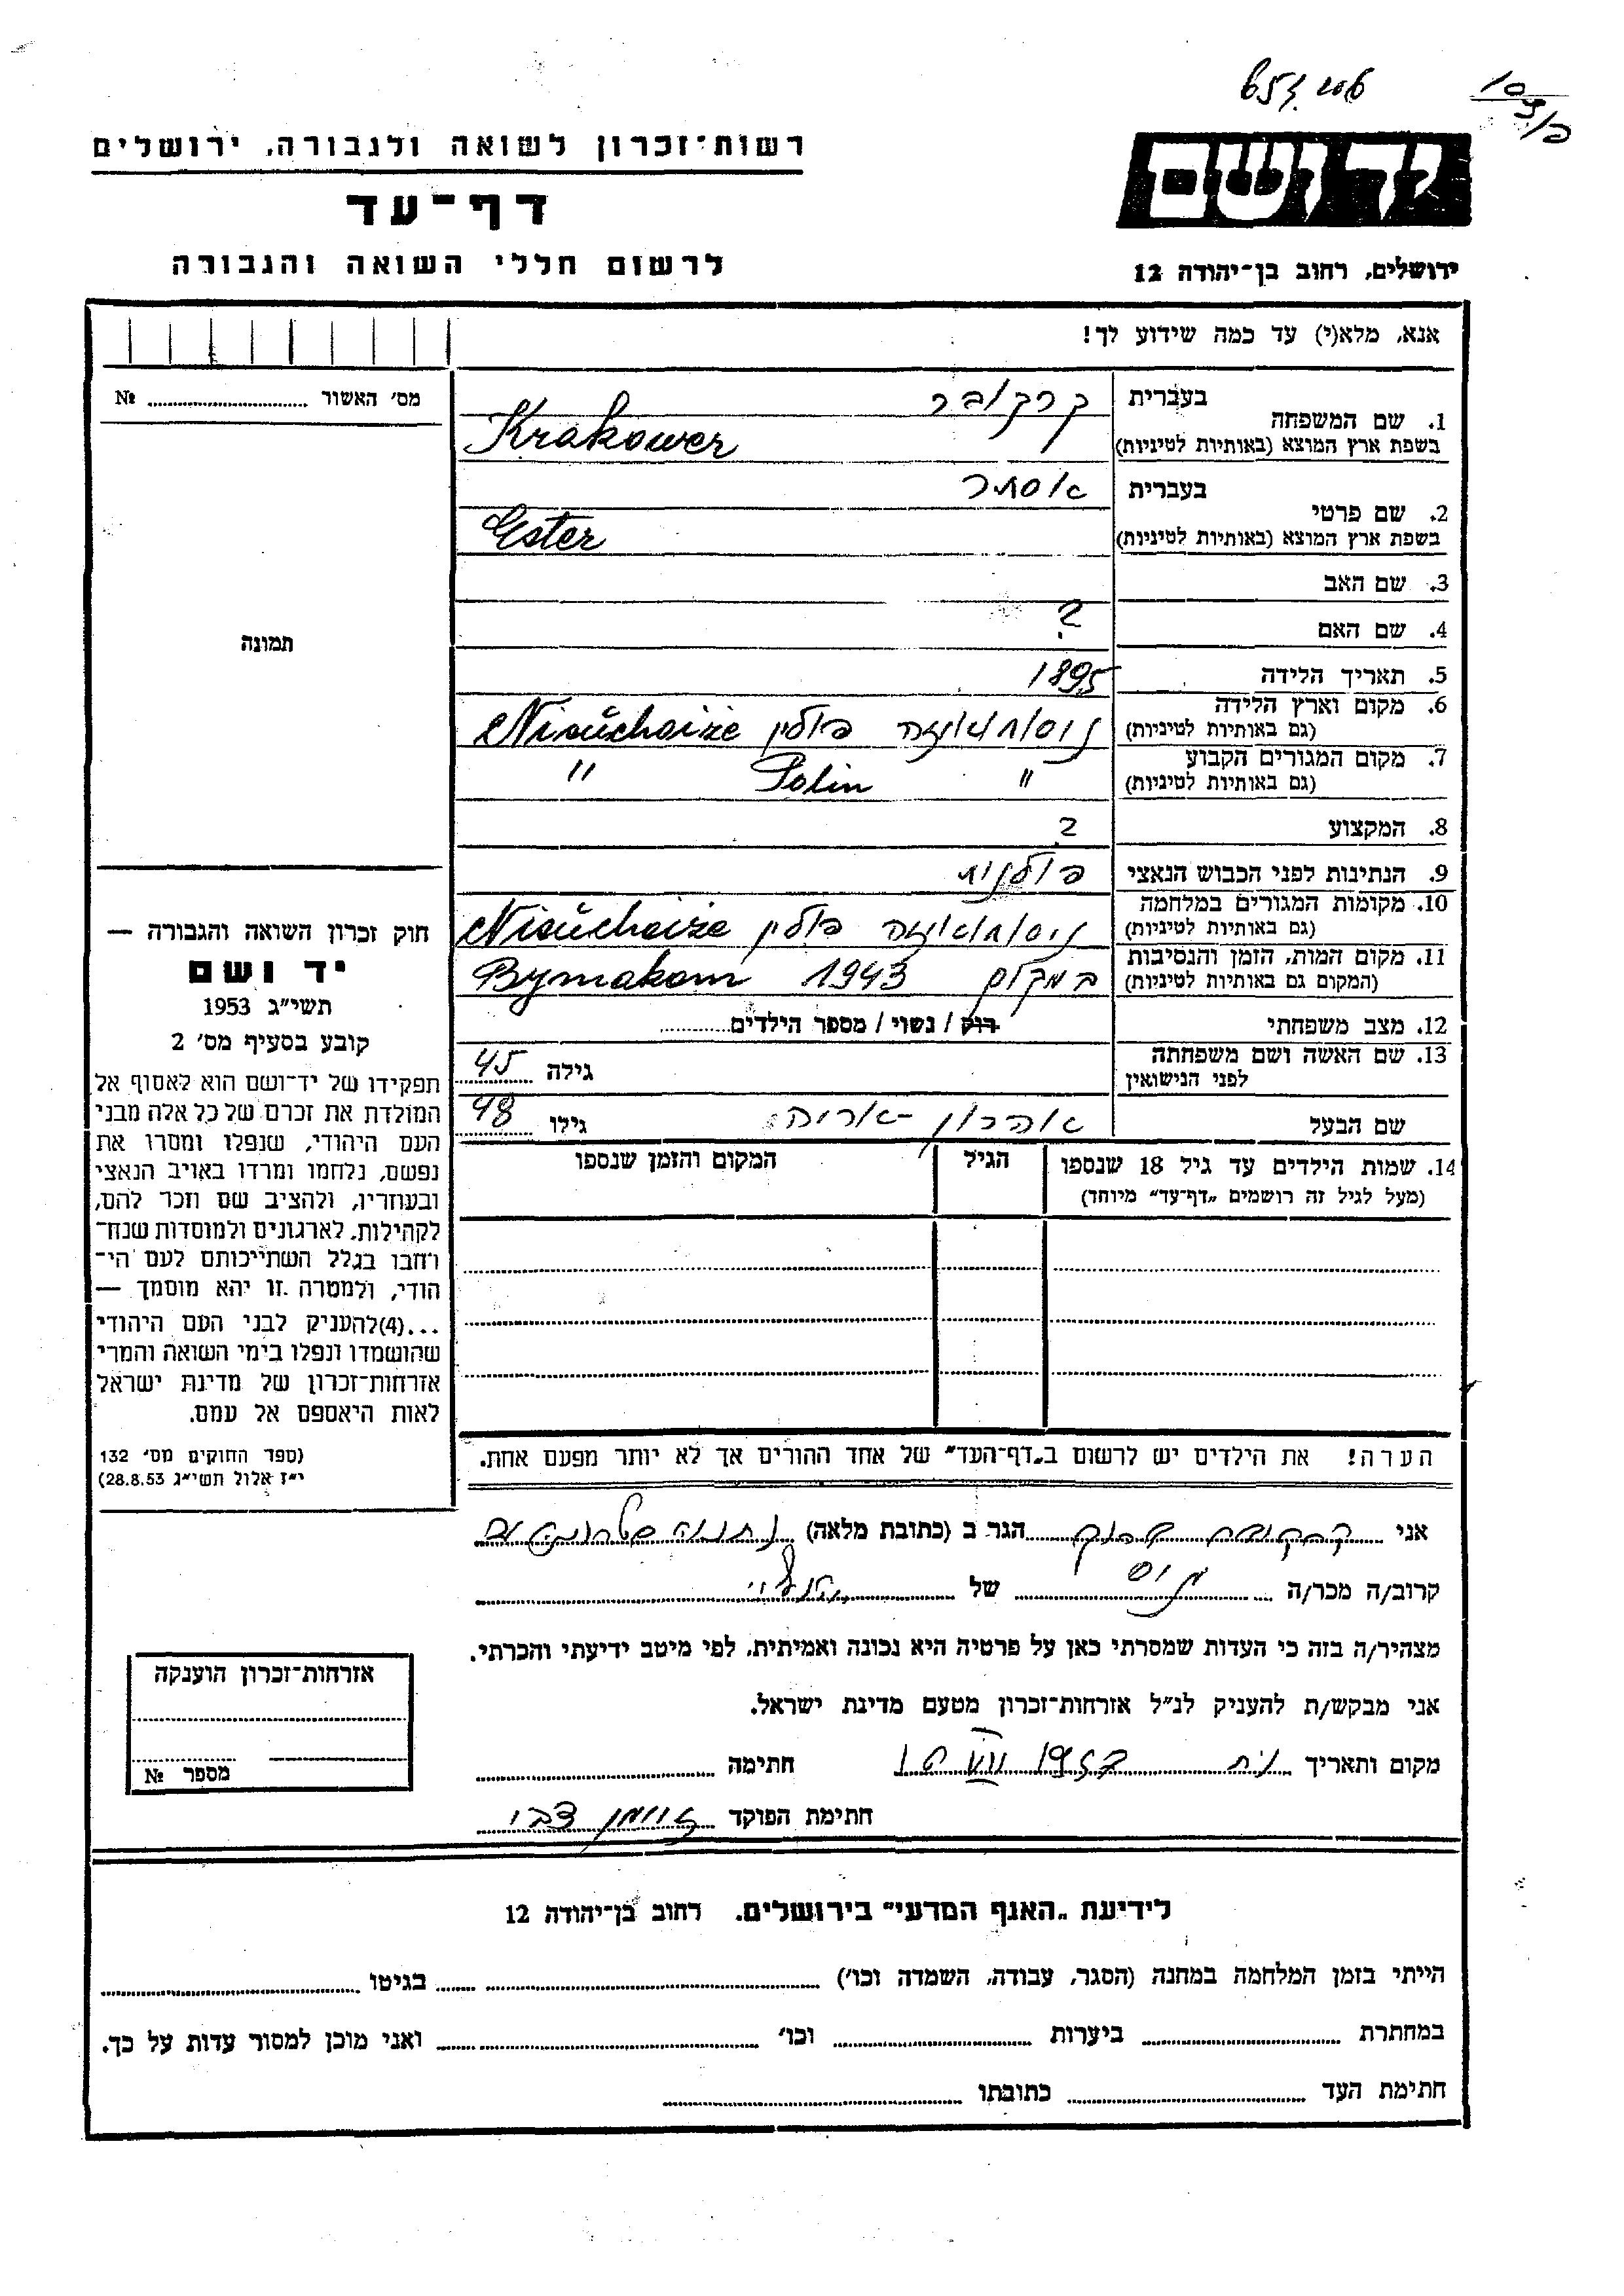 רשות־זכרון לשואה ולגבורה, ירושלים
דף־עד
לרשום חללי השואה והגבורה
יד ושם
ירושלים, רחוב בן־יהודה 12
אנא, מלא(י) עד כמה שידוע לך!
מס׳ האשור № 
תמונה
1. שם המשפחה
בעברית קרקובר
בשפת ארץ המוצא (באותיות לטיניות) Krakower
2. שם פרטי
בעברית אסתר
בשפת ארץ המוצא (באותיות לטיניות) Ester
3. שם האב
4. שם האם ?
5. תאריך הלידה 1895
6. מקום וארץ הלידה
(גם באותיות לטיניות) פולין
7. מקום המגורים הקבוע
(גם באותיות לטיניות) " Polin "
8. המקצוע ?
9. הנתינות לפני הכבוש הנאצי פולנית
10. מקומות המגורים במלחמה
(גם באותיות לטיניות) פולין
11. מקום המות, הזמן והנסיבות
(המקום גם באותיות לטיניות) במקום 1943 Bymakom
12. מצב משפחתי רוק / נשוי / מספר הילדים
13. שם האשה ושם משפחתה
לפני הנישואין גילה 45
שם הבעל אהרון - אריה גילו 48
14. שמות הילדים עד גיל 18 שנספו
(מעל לגיל זה רושמים „דף־עד" מיוחד)
הגיל
המקום והזמן שנספו
הערה! את הילדים יש לרשום ב„דף־העד" של אחד ההורים אך לא יותר מפעם אחת.
חוק זכרון השואה והגבורה —
יד ושם
תשי״ג 1953
קובע בסעיף מס׳ 2
תפקידו של יד־ושם הוא לאסוף אל
המולדת את זכרם של כל אלה מבני
העם היהודי, שנפלו ומסרו את
נפשם, נלחמו ומרדו באויב הנאצי
ובעוזריו, ולהציב שם וזכר להם,
לקהילות, לארגונים ולמוסדות שנח־
רבו בגלל השתייכותם לעם הי־
הודי, ולמטרה זו יהא מוסמך —
...(4)להעניק לבני העם היהודי
שהושמדו ונפלו בימי השואה והמרי
אזרחות־זכרון של מדינת ישראל
לאות היאספם אל עמם.
(ספר החוקים מס׳ 132
י״ז אלול תשי״ג 28.8.53)
אני קרקובר הגר ב (כתובת מלאה) נתניה
קרוב/ה מכר/ה של
מצהיר/ה בזה כי העדות שמסרתי כאן על פרטיה היא נכונה ואמיתית, לפי מיטב ידיעתי והכרתי.
אני מבקש/ת להעניק לנ״ל אזרחות־זכרון מטעם מדינת ישראל.
מקום ותאריך חתימה
חתימת הפוקד צבי
אזרחות־זכרון הוענקה
מספר №
לידיעת „האנף המדעי" בירושלים. רחוב בן־יהודה 12
הייתי בזמן המלחמה במחנה (הסגר, עבודה, השמדה וכו׳) בגיטו
במחתרת ביערות וכו׳ ואני מוכן למסור עדות על כך.
חתימת העד כתובתו